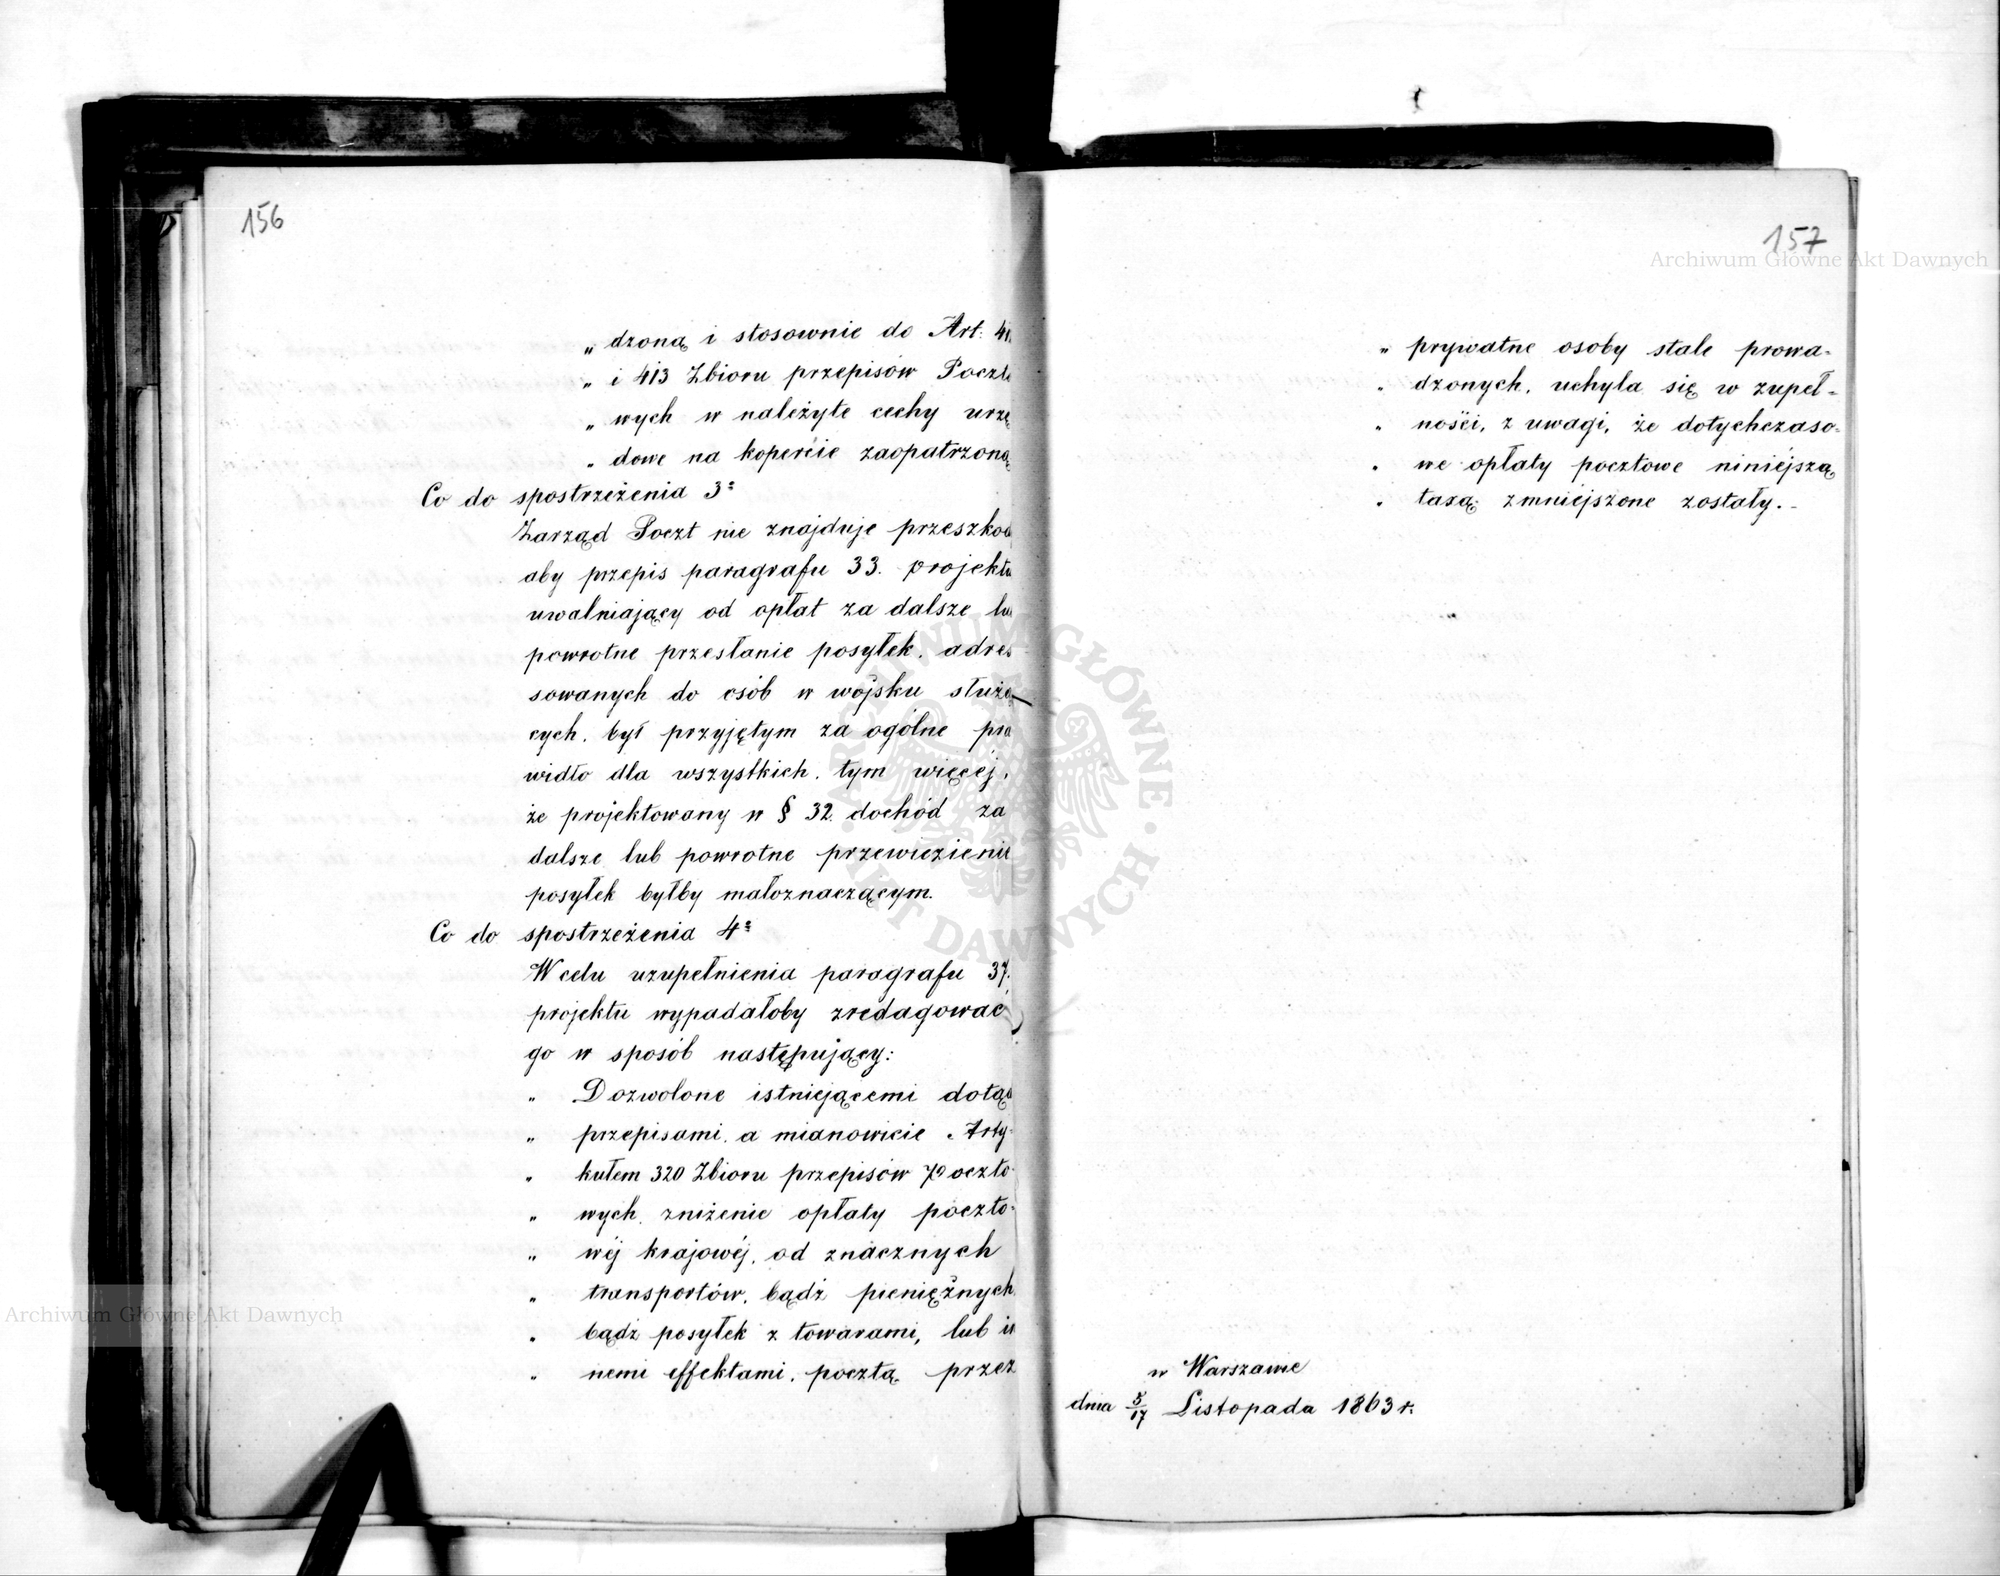 156
„ dzoną i stosownie do Art. 41
„ i 413 Zbioru przepisów Poczto
„ wych w należyte cechy urzę
„ dowe na kopercie zaopatrzoną
Co do spostrzeżenia 3º
Zarząd Poczt nie znajduje przeszkod
aby przepis paragrafu 33. projektu
uwalniający od opłat za dalsze lu
powrotne przesłanie posyłek, adres
sowanych do osób w wojsku służą
cych, był przyjętym za ogólne pra
widło dla wszystkich, tym więcej,
że projektowany w § 32. dochód za
dalsze lub powrotne przewiezienie
posyłek byłby małoznaczącym.
Co do spostrzeżenia 4º
W celu uzupełnienia paragrafu 37.
projektu wypadałoby zredagować
go w sposób następujący:
„ Dozwolone istniejącemi dotąd
„ przepisami, a mianowicie Arty-
„ kułem 320 Zbioru przepisów Poczto-
„ wych, zniżenie opłaty poczto-
„ wéj krajowéj, od znacznych
„ transportów, bądź pieniężnych
„ bądź posyłek z towarami, lub in
„ nemi effektami, pocztą przez
157
„ prywatne osoby stale prowa-
„ dzonych, uchyla się w zupeł-
„ ności, z uwagi, że dotychczaso-
„ we opłaty pocztowe niniejszą
„ taxą zmniejszone zostały. -
w Warszawie
dnia 5/17 Listopada 1863 r.
Archiwum Główne Akt Dawnych
Archiwum Główne Akt Dawnych
ARCHIWUM GŁÓWNE
AKT DAWNYCH